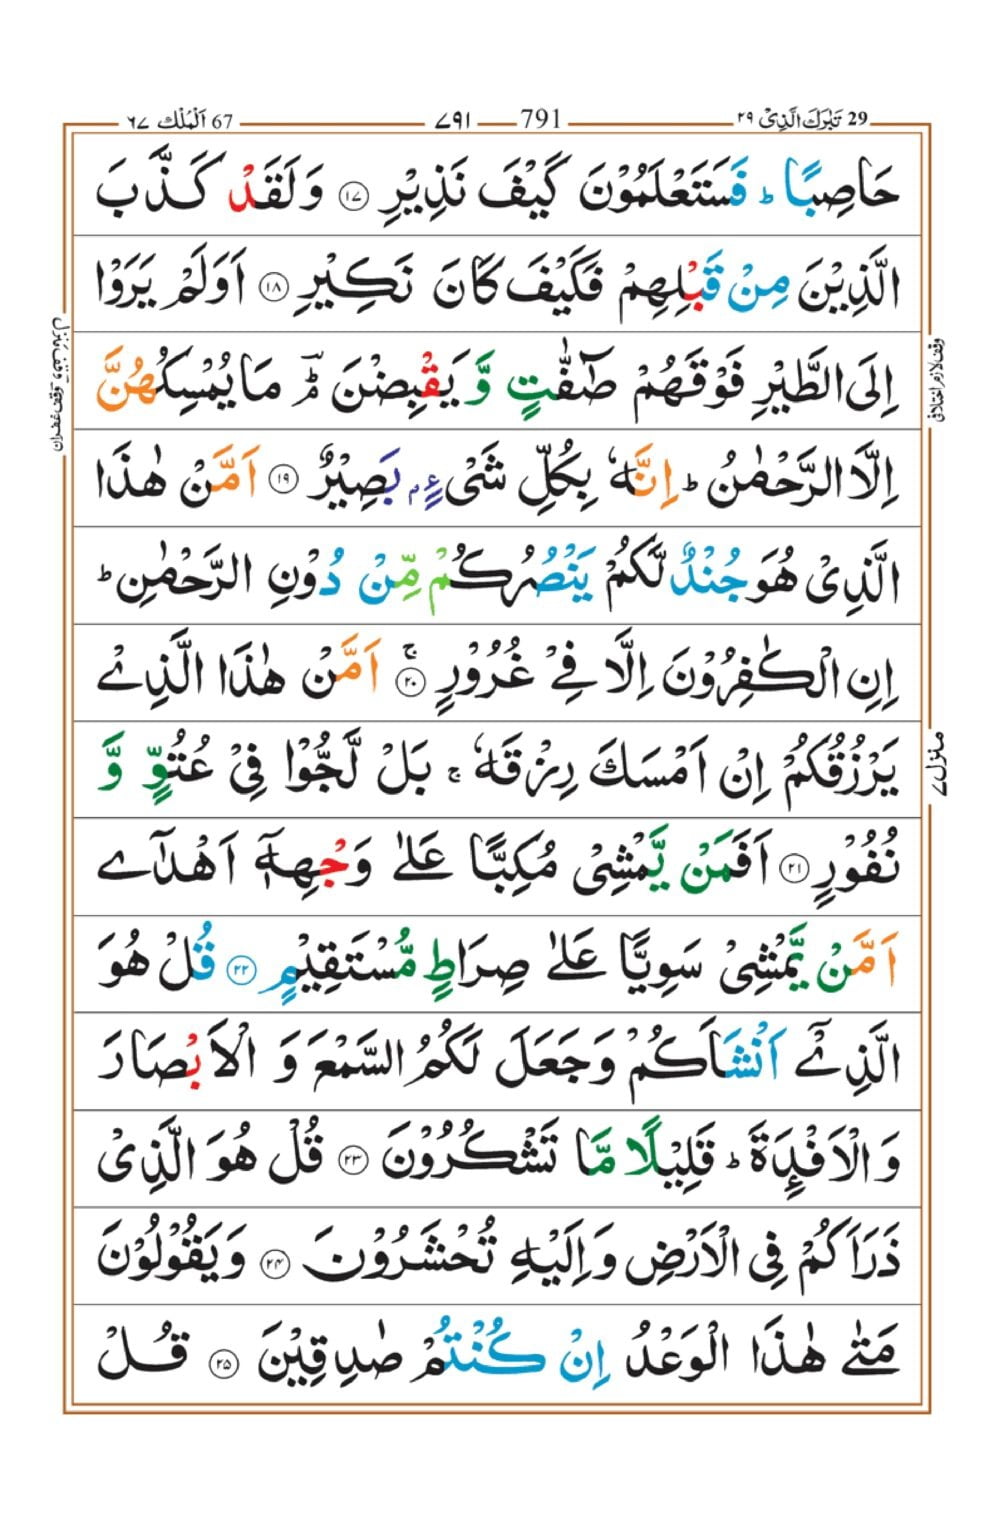 29 تَبٰرَكَ الَّذِىْ ٢٩
791 ٧٩١
67 اَلْمُلْك ٦٧
حَاصِبًا ؕ فَسَتَعْلَمُوْنَ كَيْفَ نَذِيْرِ ١٧ وَلَقَدْ كَذَّبَ
الَّذِيْنَ مِنْ قَبْلِهِمْ فَكَيْفَ كَانَ نَكِيْرِ ١٨ اَوَلَمْ يَرَوْا
اِلَى الطَّيْرِ فَوْقَهُمْ صٰٓفّٰتٍ وَّيَقْبِضْنَ ؔۘؕ مَا يُمْسِكُهُنَّ
اِلَّا الرَّحْمٰنُ ؕ اِنَّهٗ بِكُلِّ شَىْءٍۭ بَصِيْرٌ ١٩ اَمَّنْ هٰذَا
الَّذِىْ هُوَ جُنْدٌ لَّكُمْ يَنْصُرُكُمْ مِّنْ دُوْنِ الرَّحْمٰنِ ؕ
اِنِ الْكٰفِرُوْنَ اِلَّا فِىْ غُرُوْرٍ ۚ ٢٠ اَمَّنْ هٰذَا الَّذِىْ
يَرْزُقُكُمْ اِنْ اَمْسَكَ رِزْقَهٗ ۚ بَلْ لَّجُّوْا فِىْ عُتُوٍّ وَّ
نُفُوْرٍ ٢١ اَفَمَنْ يَّمْشِىْ مُكِبًّا عَلٰى وَجْهِهٖۤ اَهْدٰٓى
اَمَّنْ يَّمْشِىْ سَوِيًّا عَلٰى صِرَاطٍ مُّسْتَقِيْمٍ ٢٢ قُلْ هُوَ
الَّذِىْۤ اَنْشَاَكُمْ وَجَعَلَ لَكُمُ السَّمْعَ وَ الْاَبْصَارَ
وَالْاَفْـِٕدَةَ ؕ قَلِيْلًا مَّا تَشْكُرُوْنَ ٢٣ قُلْ هُوَ الَّذِىْ
ذَرَاَكُمْ فِى الْاَرْضِ وَاِلَيْهِ تُحْشَرُوْنَ ٢٤ وَيَقُوْلُوْنَ
مَتٰى هٰذَا الْوَعْدُ اِنْ كُنْتُمْ صٰدِقِيْنَ ٢٥ قُلْ
وقف لازم اختلافی
منزل ٧
وقف غفران